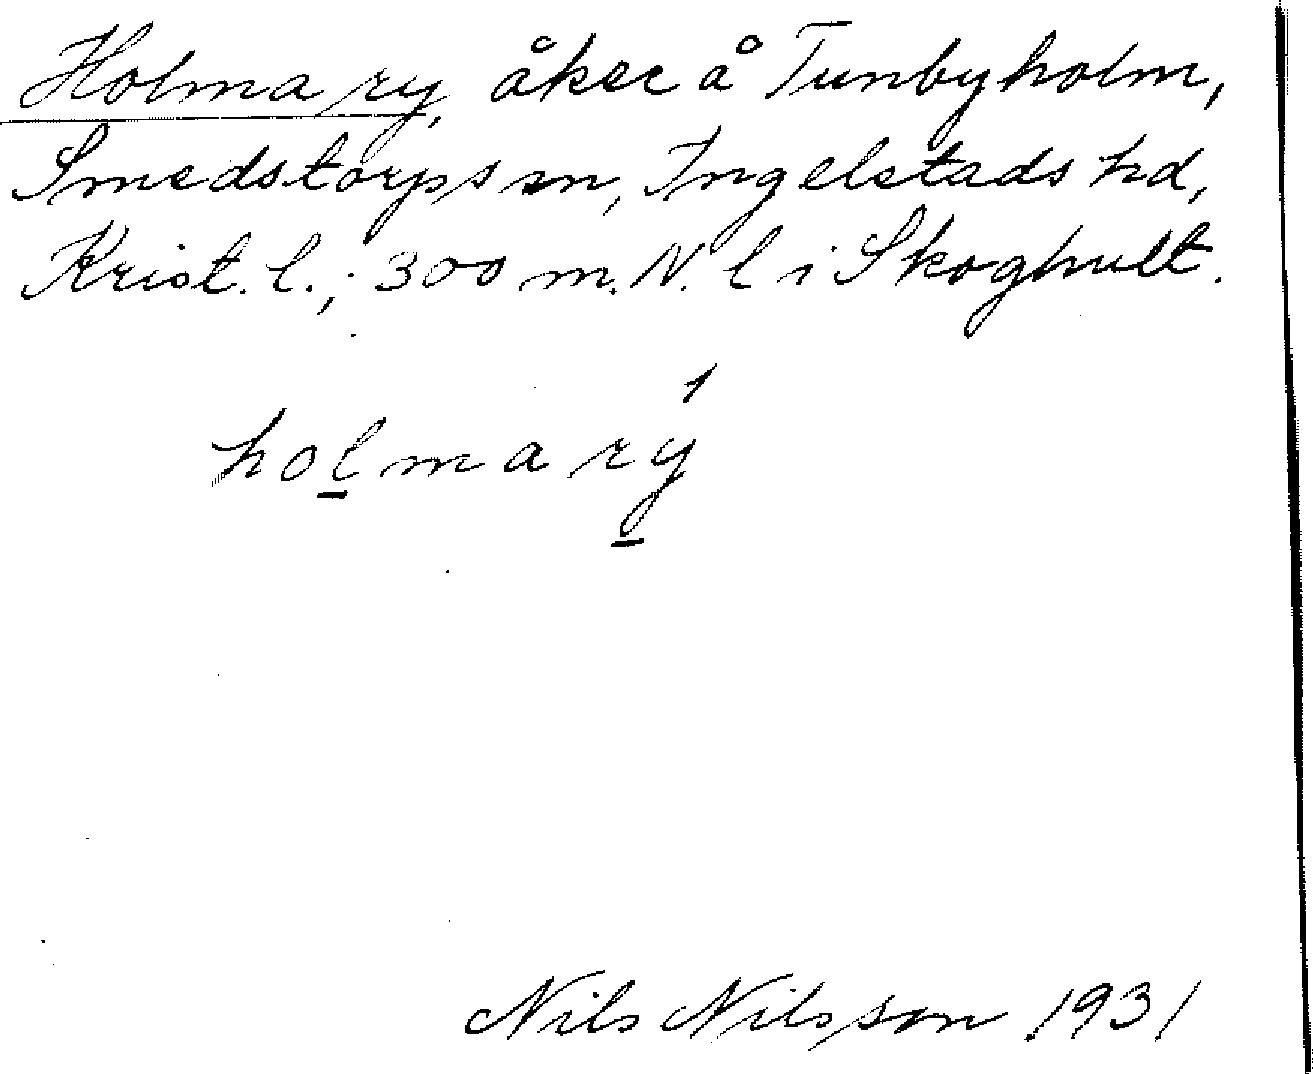 Holmary, åker å Tunbyholm,
Smedstorps sn, Ingelstads hd,
Krist. l.; 300 m. N. l i Skoghult.
holmarý
Nils Nilsson 1931